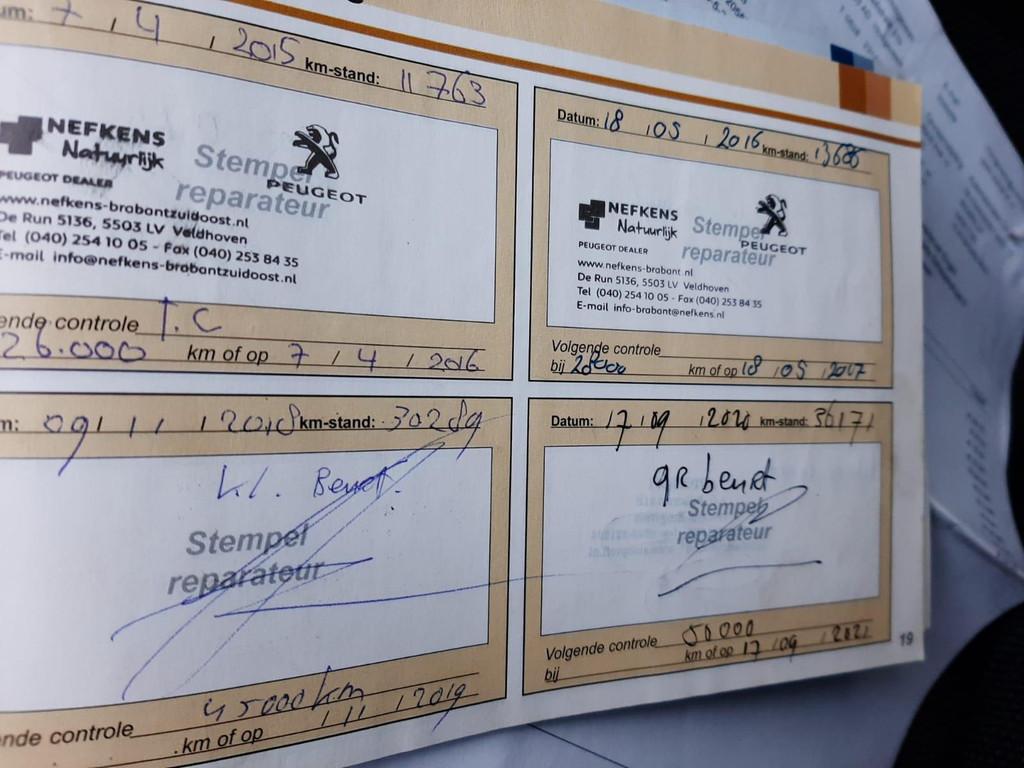 um: 7 / 4 / 2015 km-stand: 11763
NEFKENS
Natuurlijk
PEUGEOT DEALER
Stempel
reparateur
PEUGEOT
www.nefkens-brabantzuidoost.nl
De Run 5136, 5503 LV Veldhoven
Tel (040) 254 10 05 - Fax (040) 253 84 35
E-mail info@nefkens-brabantzuidoost.nl
ende controle T.C
26.000 km of op 7 / 4 / 2016
Datum: 18 / 05 / 2016 km-stand:
NEFKENS
Natuurlijk
PEUGEOT DEALER
Stempel
reparateur
PEUGEOT
www.nefkens-brabant.nl
De Run 5136, 5503 LV Veldhoven
Tel (040) 254 10 05 - Fax (040) 253 84 35
E-mail info-brabant@nefkens.nl
Volgende controle
bij 28000 km of op 18 / 05 / 2017
m: 09 / 11 / 2018 km-stand: 30289
kl. Beurt.
Stempel
reparateur
45000 km
ende controle
km of op / 11 / 2019
Datum: 17 / 09 / 2020 km-stand: 36171
gR beurt
Stempel
reparateur
Volgende controle 50000
bij km of op 17 / 09 / 2021
19